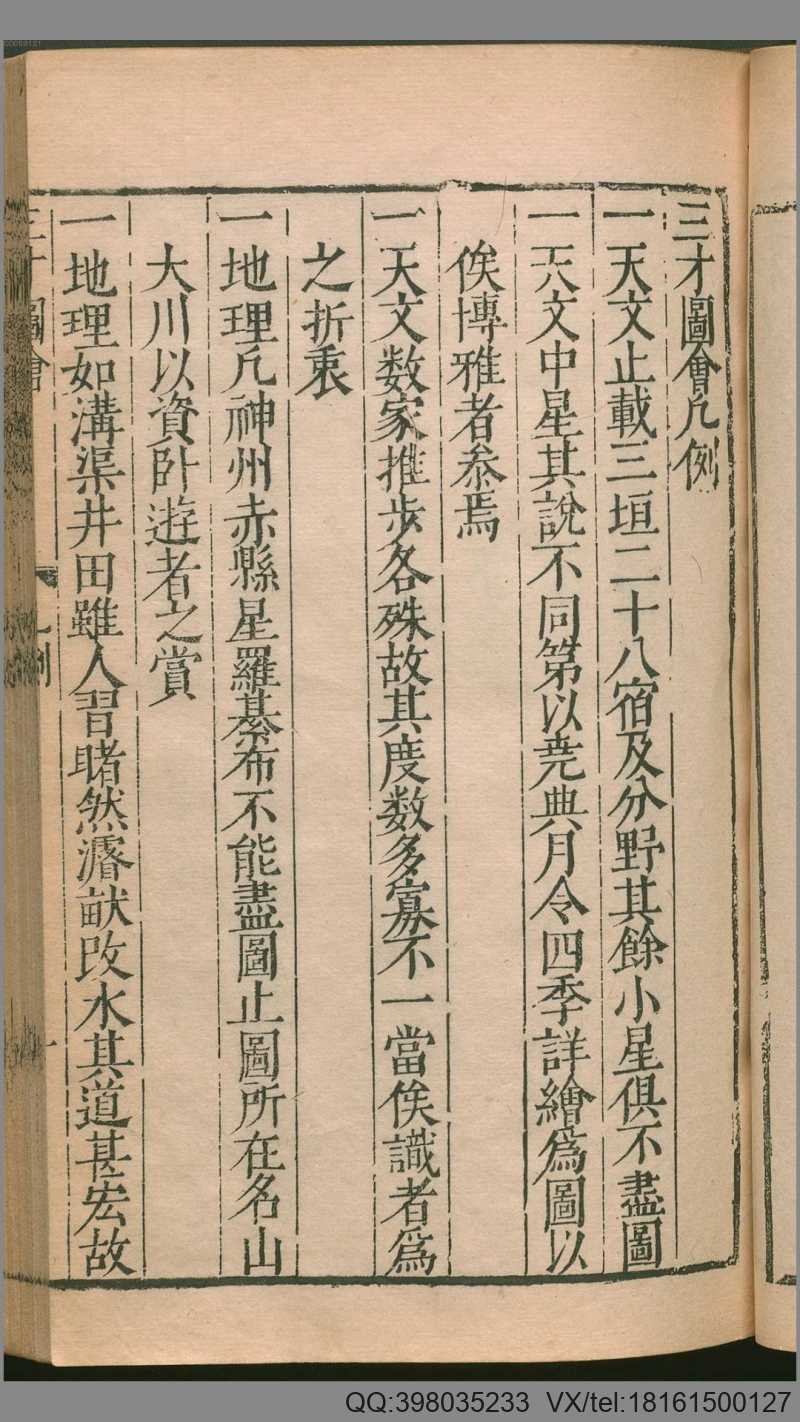 三才圖會凡例
一天文止載三垣二十八宿及分野其餘小星俱不盡圖
一天文中星其說不同第以堯典月令四季詳繪爲圖以
俟博雅者叅焉
一天文数家推步各殊故其度数多寡不一當俟識者爲
之折衷
一地理凡神州赤縣星羅棊布不能盡圖止圖所在名山
大川以資卧遊者之賞
一地理如溝渠井田雖人習睹然濬畎改水其道甚宏故
三才圖會 凡例 一
QQ:398035233 VX/tel:18161500127